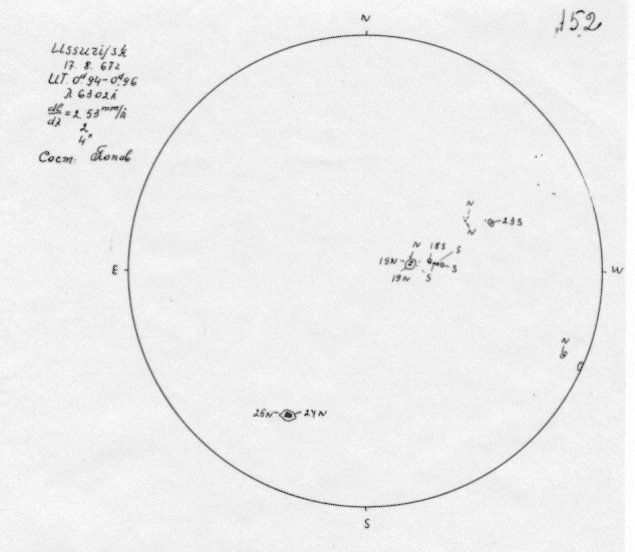 N
152
Ussurijsk
17. 8. 67г
UT. 0ᵈ94-0ᵈ96
λ 6302Å
dl/dλ = 2.53 mm/Å
2
4"
Сост:
N
N
23S
N
18S
S
19N
S
19N
S
E
W
N
26N
24N
S